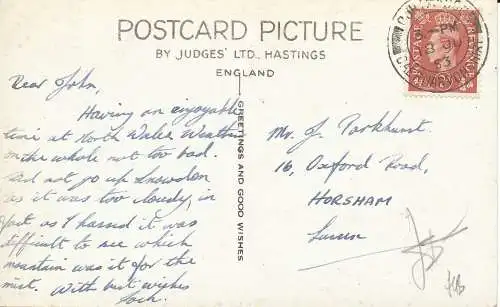 POSTCARD PICTURE
BY JUDGES' LTD., HASTINGS
ENGLAND
Dear John,
Having an enjoyable
time at North Wales Weather
on the whole not too bad.
Did not go up Snowdon
as it was too cloudy, in
fact as I heard it was
difficult to see which
mountain was it for the
mist. With best wishes
GREETINGS AND GOOD WISHES
Mr. J. Parkhurst.
16, Oxford Road,
HORSHAM
Sussex
POSTAGE
REVENUE
53